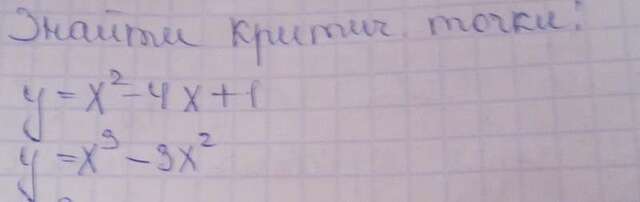 Знайти критич. точки:
y = x² - 4x + 1
y = x³ - 3x²